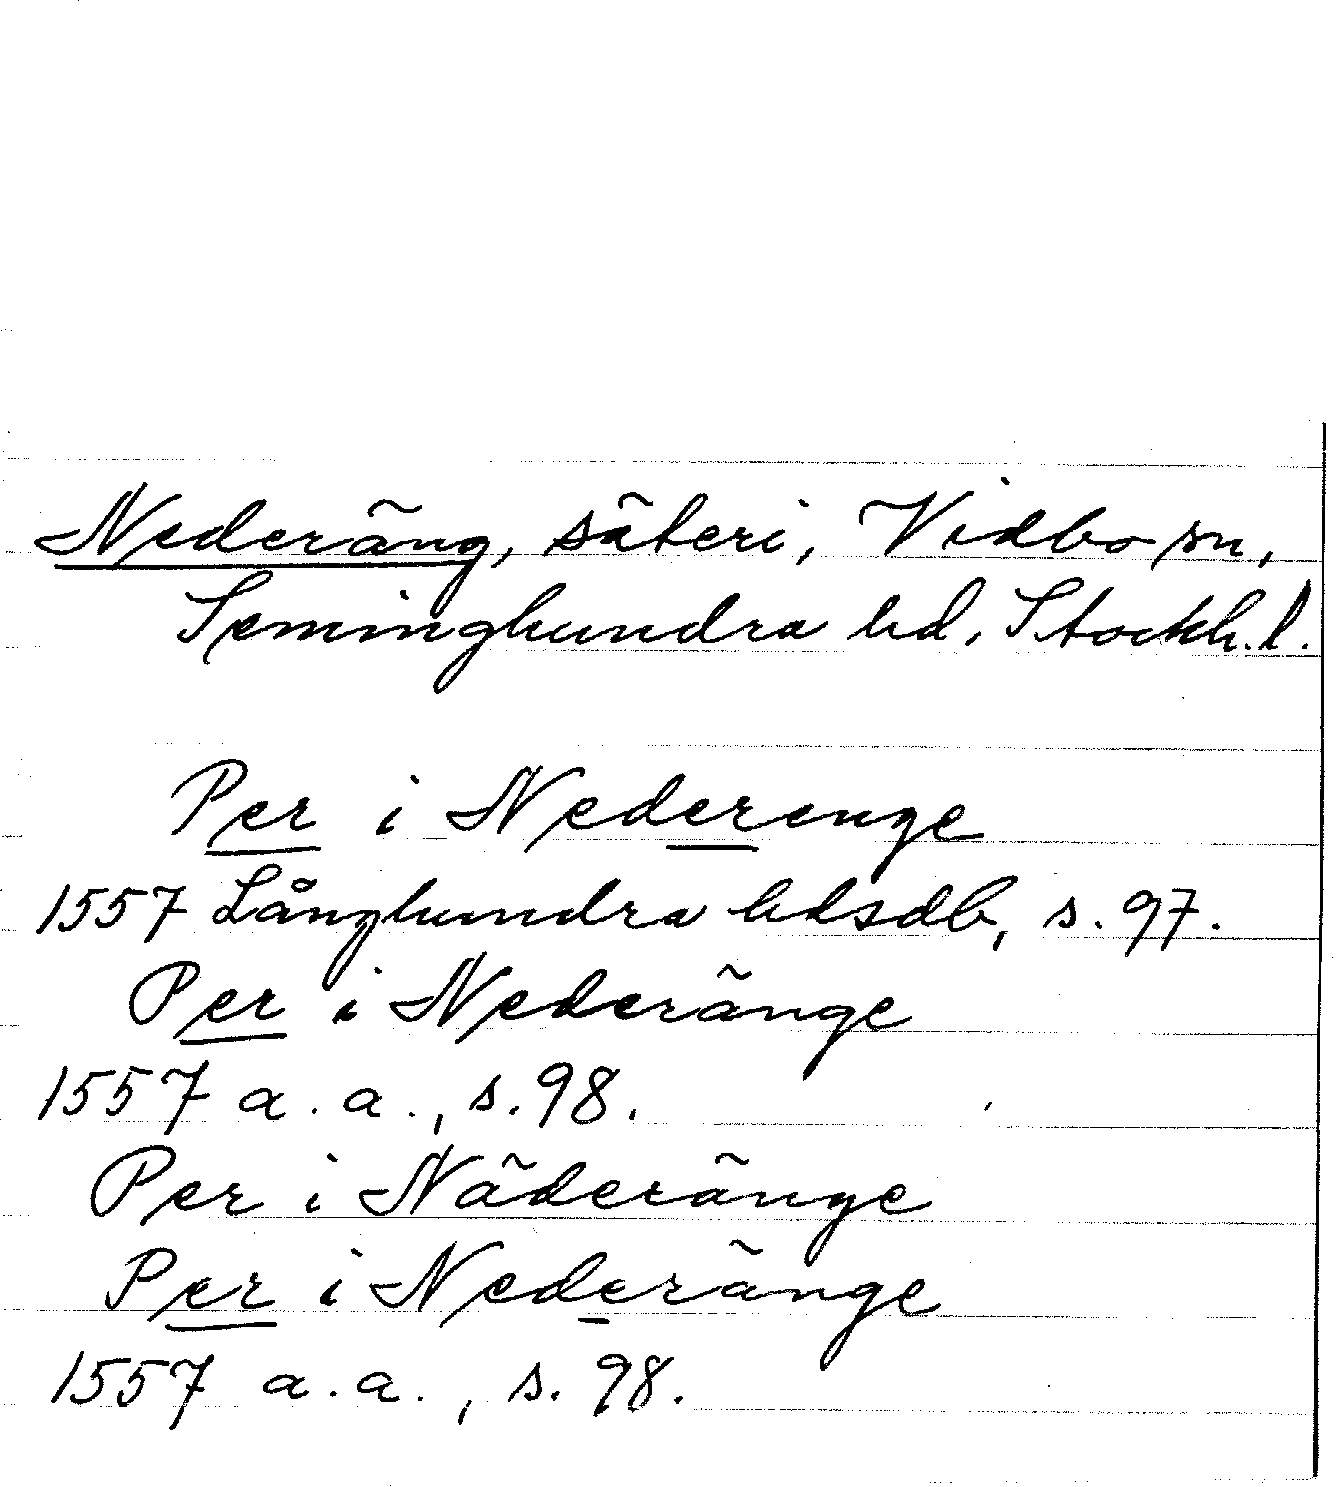 Nederäng, säteri, Vidbo sn,
Seminghundra hd, Stockh. l.
Per i Nederenge
1557 Långhundra hdsdb, s. 97.
Per i Nederänge
1557 a. a., s. 98.
Per i Näderänge
Per i Nederänge
1557 a. a., s. 98.